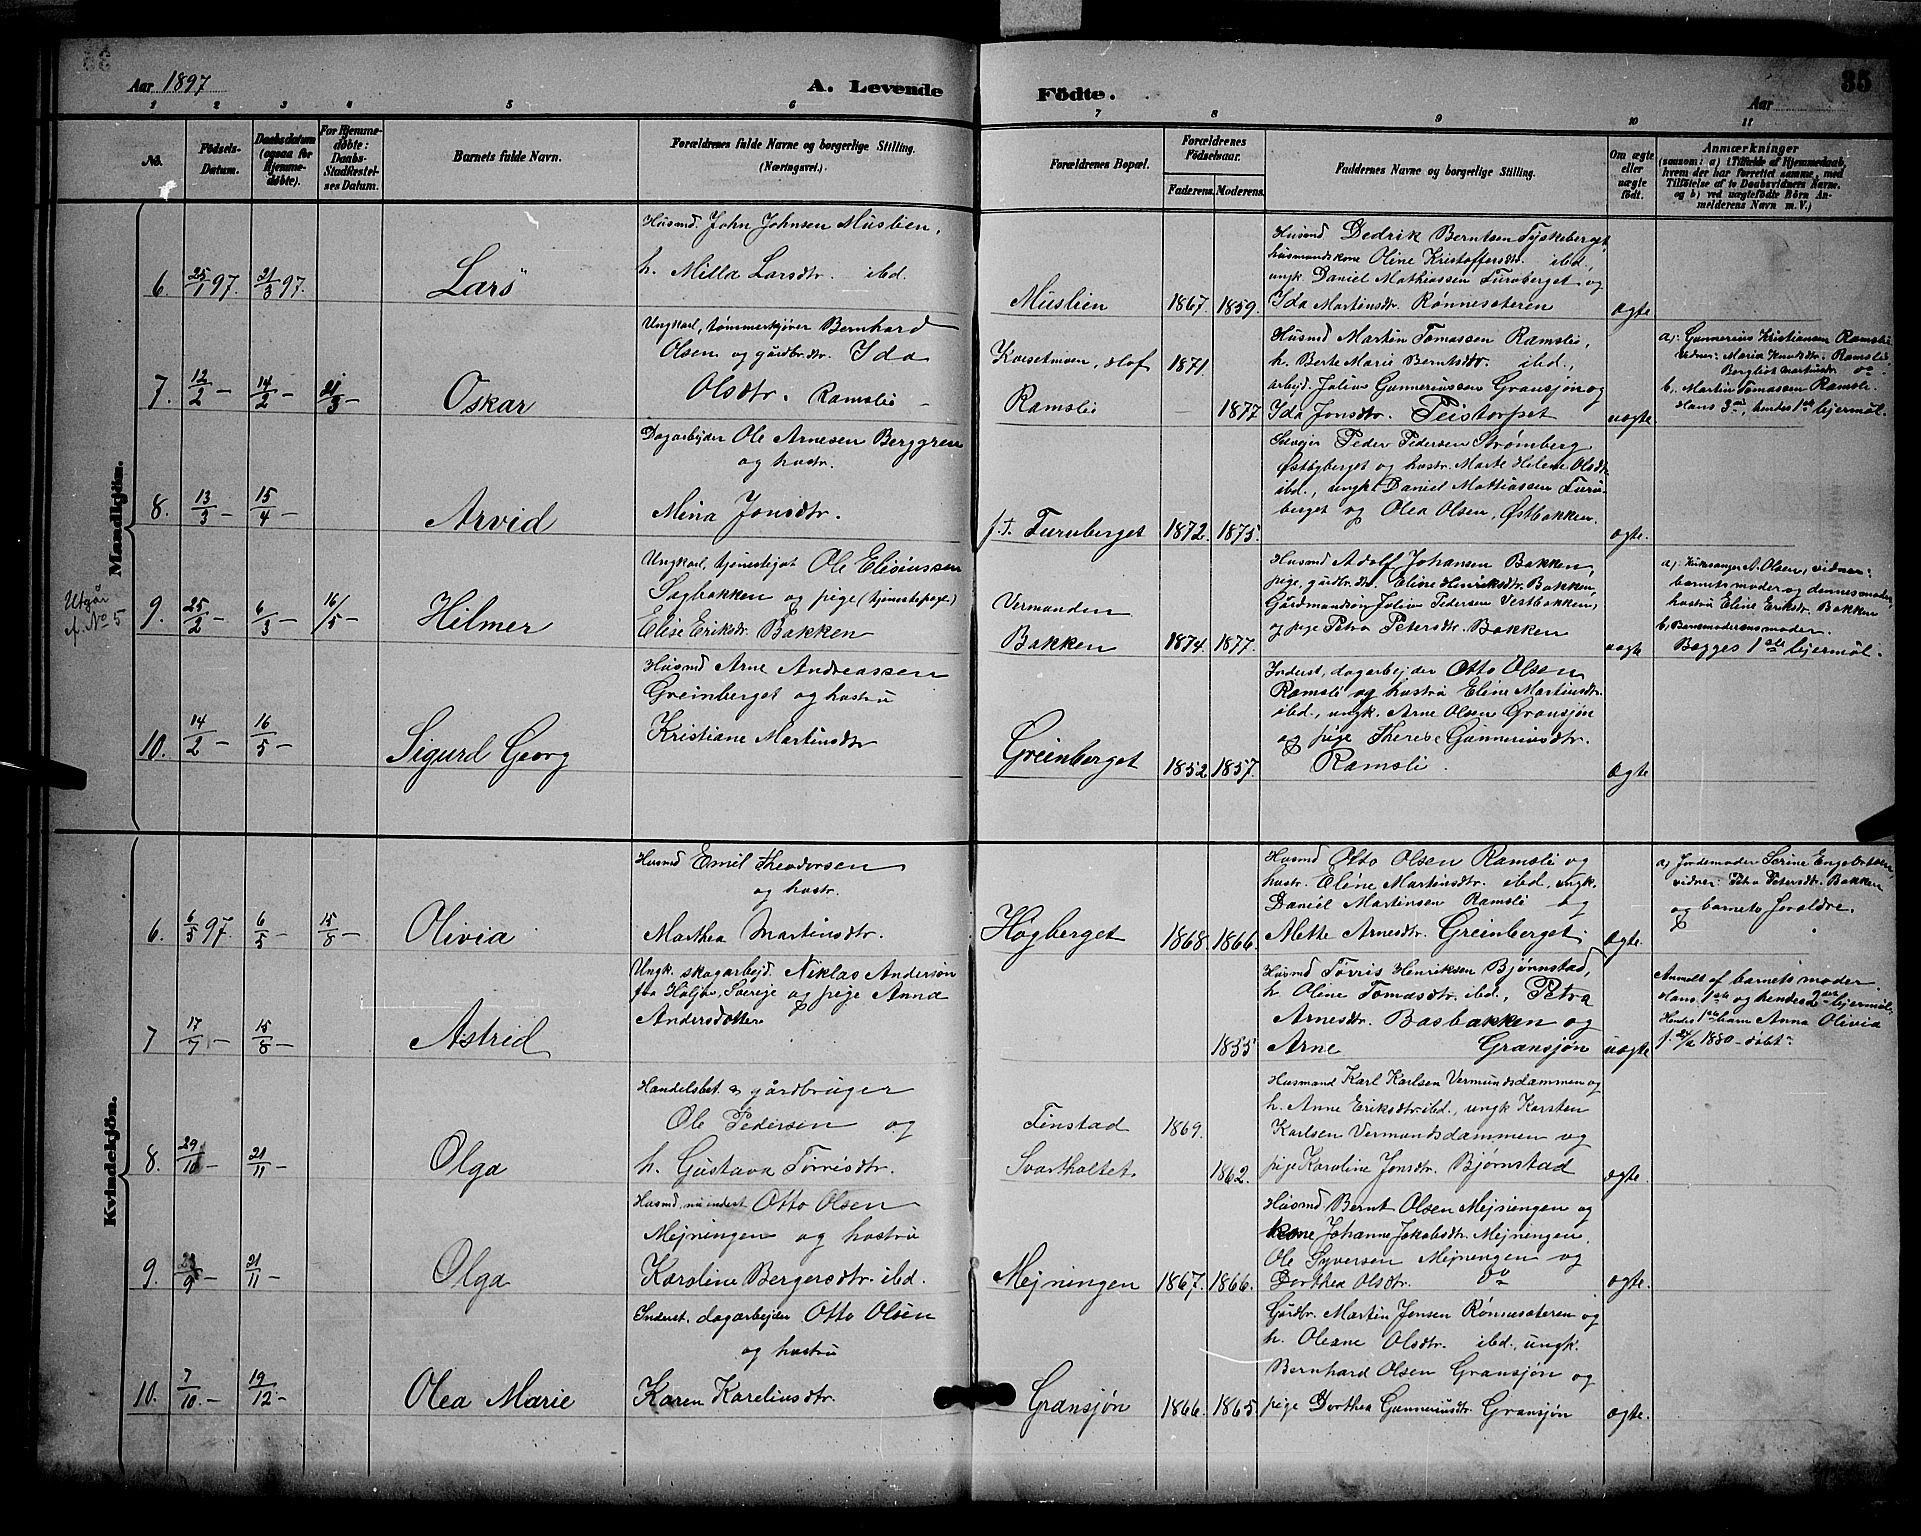 Aar 1897
A. Levende Födte.
Aar
35
1 2 3 4 5 6 7 8 9 10 11
No.
Födsels-Datum.
Daabsdatum (ogsaa for Hjemmedöbte).
For Hjemmedöbte: Daabs-Stadfæstelses Datum.
Barnets fulde Navn.
Forældrenes fulde Navne og borgerlige Stilling. (Næringsvei.)
Forældrenes Bopæl.
Forældrenes Födselsaar.
Faderens. Moderens.
Faddernes Navne og borgerlige Stilling.
Om ægte eller uægte födt.
Anmærkninger
(saasom: a) i Tilfælde af Hjemmedaab, hvem der har forrettet samme, med Tilföielse af to Daabsvidners Navne, og b) ved uægtefödte Börn Anmelderens Navn m. V.)
Mandkjön.
6. 25/1 97. 21/3 97. Lars
Husmd. John Johnsen Muslien,
h. Milla Larsdtr. ibd.
Muslien 1867. 1859.
Husmd Dedrik Berntsen Tyskeberget
husmandskone Oline Kristoffersdtr. ibd.,
ungk. Daniel Mathiassen Furuberget og
Ida Martinsdtr. Rønnesæteren
ægte
7. 12/2 – 14/2 – 21/3 – Oskar
Ungkarl, tømmerkjører Bernhard
Olsen og gårdbr.dtr. Ida
Olsdtr. Ramsli –
Elof 1871.
Ramsli 1877
Husmd Martin Tomassen Ramsli,
h. Berte Marie Berntsdtr. ibd.,
arbejd. Julius Gunneriussen Gransjøn og
Ida Jonsdtr. Peistorpet
uægte
a): Gunnerius Kristiansen Ramsli
vidner: Maria Knudsdtr. Ramsli
Bergliot Martinsdtr do.
b. Martin Tomassen Ramsli.
Hans 3die, hendes 1ste lejermål.
8. 13/3 – 15/4 – Arvid
Dagarbejder Ole Arnesen Berggren
og hustr.
Mina Jonsdtr.
f.t. Furuberget 1872. 1875.
Selvejer Peder Pedersen Strømberg
Østbyberget og hustr. Marte Helene Olsdtr
ibd., ungk. Daniel Mathiassen Furu-
berget og Olea Olsen, Østbakken.
ægte.
Utgår
cf. No 5
9. 25/2 – 6/3 – 16/5 – Hilmer
Ungkarl, tjenestegut Ole Eliseussen
Sagbakken og pige (tjenestepige)
Elise Eriksdtr. Bakken –
Vermunden
Bakken 1874. 1877.
Husmd Adolf Johansen Bakken,
pige, gårdbr.dtr. Eline Henriksdtr. Bakken,
Gårdmandssøn Julius Pedersen Vestbakken,
og pige Petra Petersdtr. Bakken
uægte
a) Kirkesanger A. Olsen, vidner:
barnets moder og dennes moder,
hustru Eline Eriksdr. Bakken
b) Barnemoderens moder.
Begges 1ste lejermål.
10. 14/2 – 16/5 – Sigurd Georg
Husmd Arne Andreassen
Greinberget og hustru
Kristiane Martinsdtr
Greinberget 1852 1857.
Inderst, dagarbejder Otto Olsen
Ramsli og hustru Eline Martinsdtr.
ibd., ungk. Arne Olsen Gransjøn
og pige Therese Gunneriusdtr.
Ramsli.
Ægte
Kvindekjön.
6. 6/5 97. 6/5 – 15/8 – Olivia
Husmd Emil Theodorsen
og hustr.
Marthea Martinsdtr.
Høgberget 1868. 1866.
Husmd Otto Olsen Ramsli og
hustr. Eline Martinsdtr. ibd., ungk.
Daniel Martinsen Ramsli og
Mette Arnesdtr. Greinberget.
Ægte.
a) Jordemoder Serine Engebretsen,
vidner: Petra Petersdtr. Bakken
og barnets forældre.
7 17/7 – 15/8 – Astrid
Ungk. skogarbejd. Niklas Anderson
fra Höljes, Sverige og pige Anna
Andersdotter
1855
Husmd Tørris Henriksen Bjørnstad,
h. Oline Tomasdtr. ibd., Petra
Arnesdtr. Basbakken og
Arne Gransjøn
uægte
Anmeldt af barnets moder.
Hans 1ste og hendes 2det lejermål,
Hendes 1ste barn Anna Olivia
f. 24/2 1880 – døbt
8. 29/10 – 21/11 – Olga
Handelsbet. & gårdbruger
Ole Pedersen og
h. Gustava Tørrisdtr.
Finstad 1869.
Svartholtet 1862.
Husmand Karl Karlsen Vermundsdammen og
h. Anne Eriksdtr. ibd., ungk Karsten
Karlsen Vermundsdammen og
pige Karoline Jonsdtr. Bjørnstad
ægte.
9. 23/9 – 21/11 – Olga
Husmd, nu inderst Otto Olsen
Mejningen og hustru
Karoline Bergersdtr. ibd.
Mejningen 1867. 1866.
Husmd Bernt Olsen Mejningen og
kone Johanne Jakobsdtr. Mejningen.
Ole Syversen Mejningen og
Dorthea Olsdtr. do
ægte.
10. 7/10. – 19/12 – Olea Marie
Inderst, dagarbejder Otto Olsen
og hustru
Karen Kareliusdtr.
Gransjøn 1866. 1865.
Gårdbr. Martin Jensen Rønnesæteren og
h. Oleane Olsdtr. ibd., ungk.
Bernhard Olsen Gransjøn og
pige Dorthea Gunneriusdtr. Gransjøn
ægte.